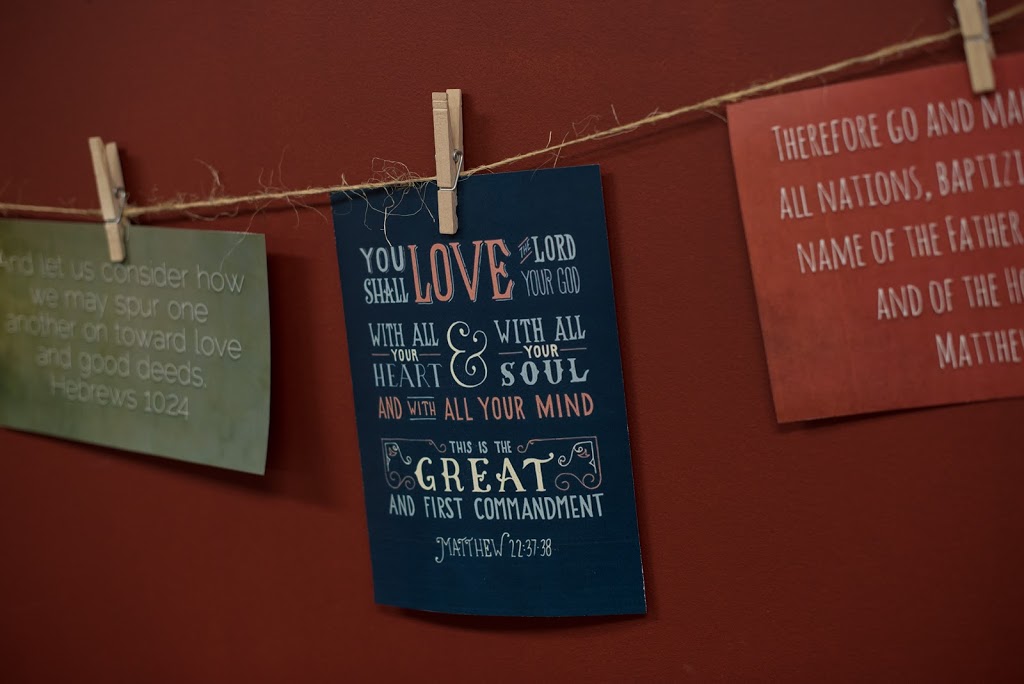 And let us consider how
we may spur one
another on toward love
and good deeds.
Hebrews 10:24
YOU SHALL LOVE THE LORD YOUR GOD
WITH ALL YOUR HEART & WITH ALL YOUR SOUL
AND WITH ALL YOUR MIND
THIS IS THE
GREAT
AND FIRST COMMANDMENT
MATTHEW 22:37-38
THEREFORE GO AND
ALL NATIONS,
NAME OF THE FATHER
AND OF THE
MATTHEW